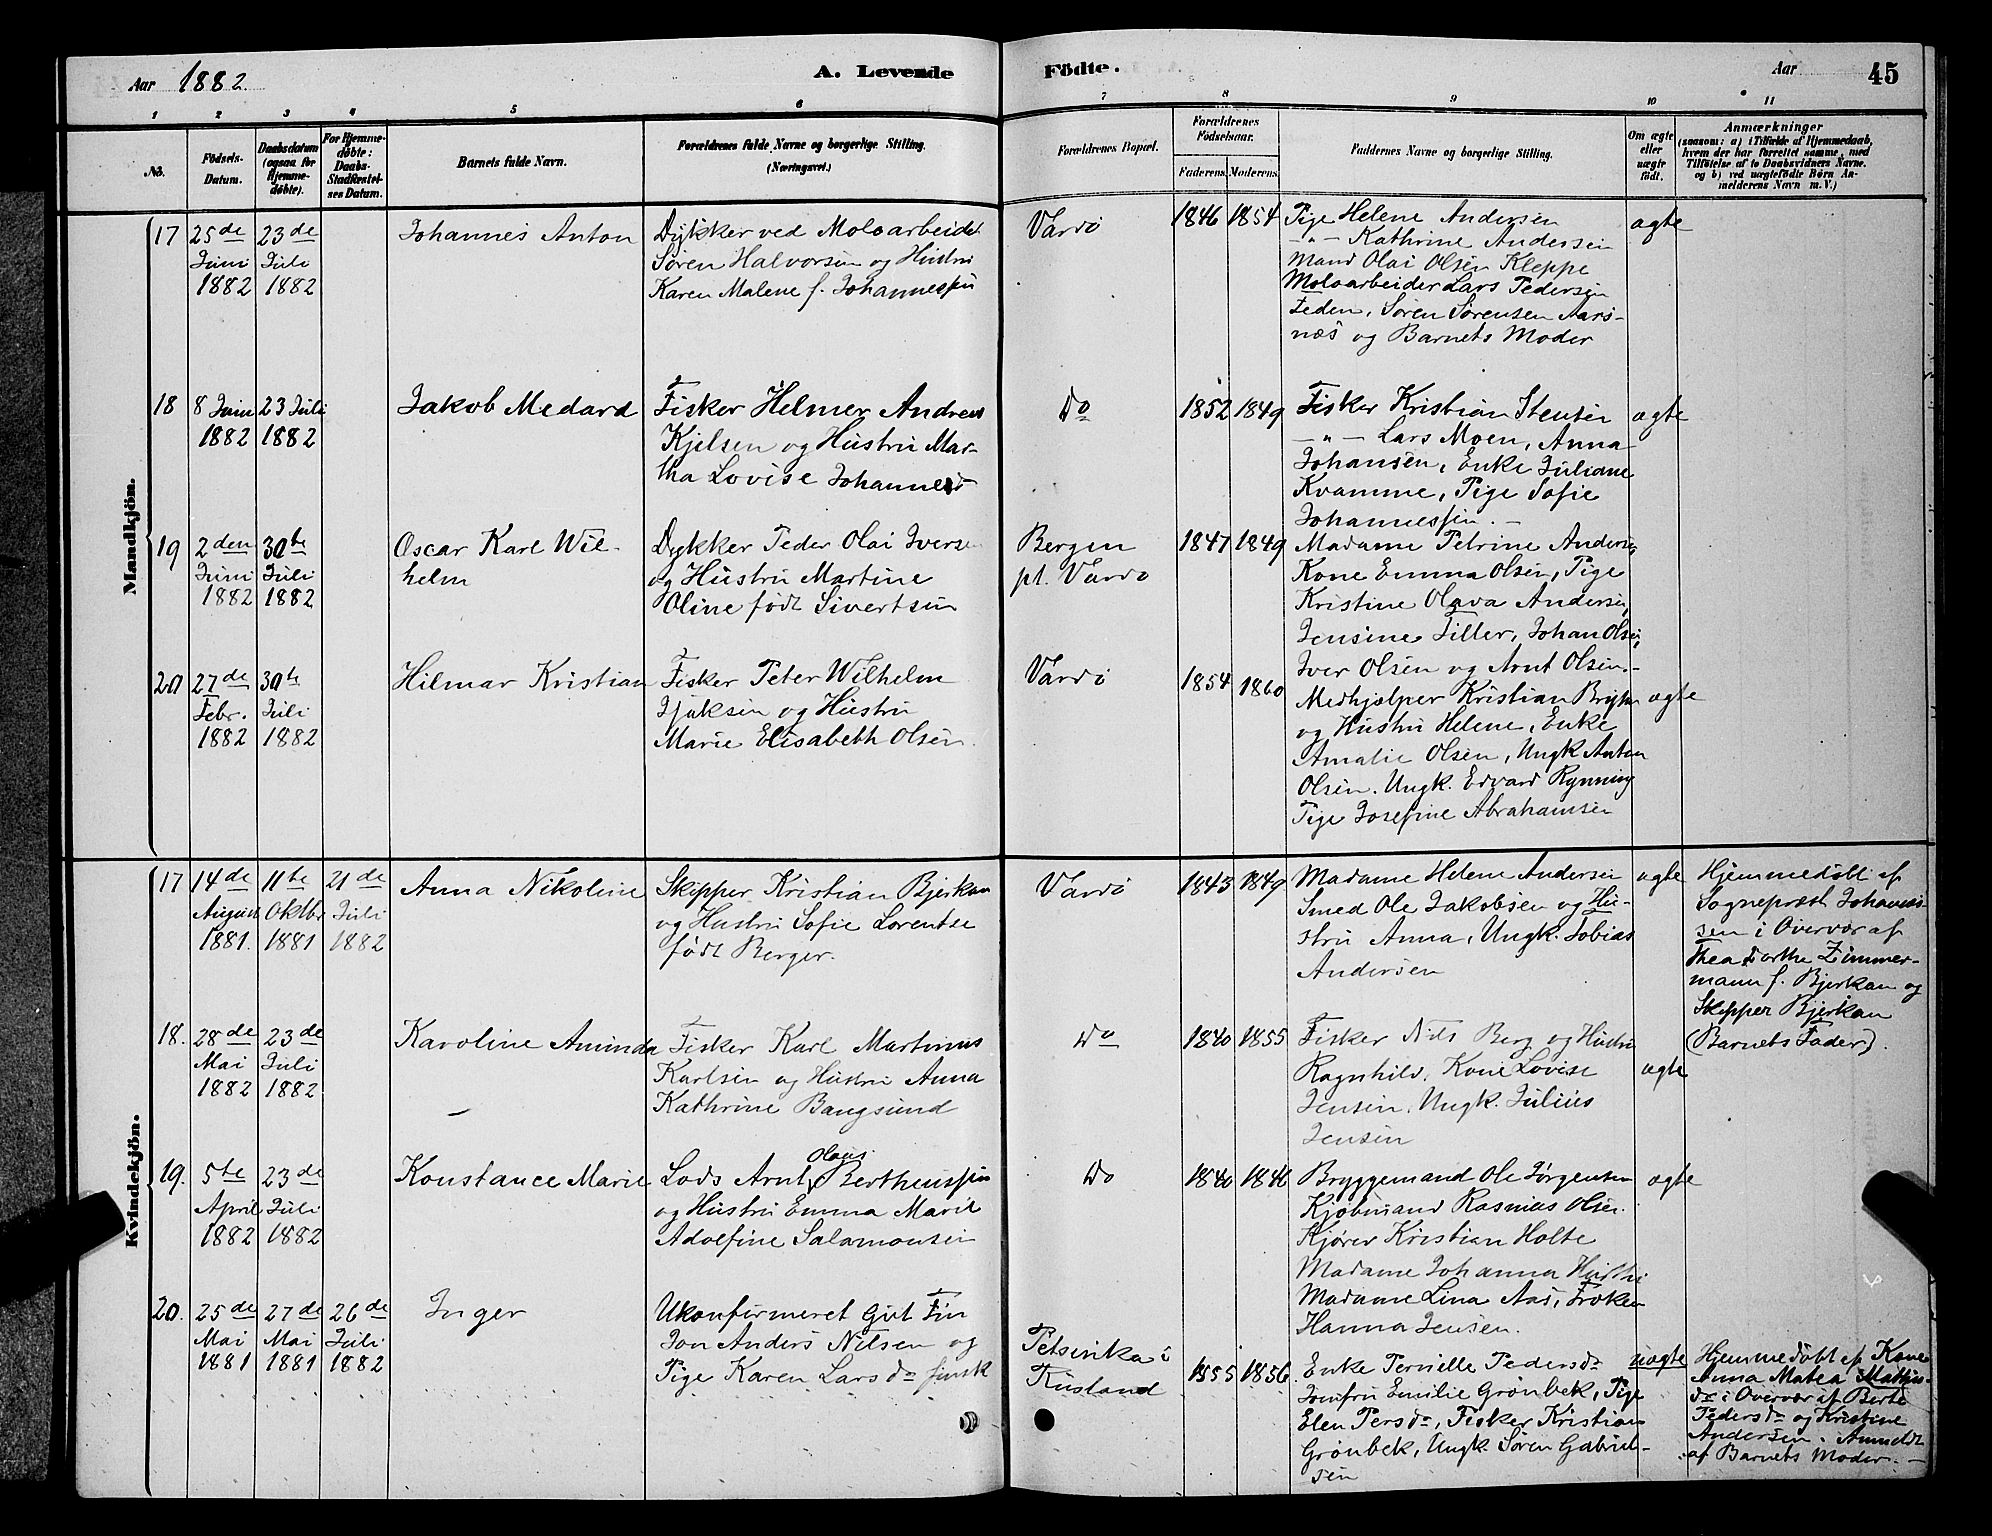 Aar 1882.
A. Levende
Födte.
Aar
45
1 2 3 4 5 6 7 8 9 10 11
No.
Födsels-
Datum.
Daabsdatum
(ogsaa for
Hjemme-
döbte).
For Hjemme-
døbte:
Daabs-
Stadfæstel-
ses Datum.
Barnets fulde Navn.
Forældrenes fulde Navne og borgerlige Stilling.
(Næringsvei.)
Forældrenes Bopæl.
Forældrenes
Födselsaar.
Faderens. Moderens.
Faddernes Navne og borgerlige Stilling.
Om ægte
eller
uægte
født.
Anmærkninger
(saasom: a) i Tilfælde af Hjemmedaab,
hvem der har forrettet samme, med
Tilföielse af to Daabsvidners Navne,
og b) ved uægtefödte Börn An-
melderens Navn m. V.)
Mandkjön.
17
25de
Juni
1882
23de
Juli
1882
Johannes Anton
Dykker ved Moloarbeidet
Søren Halvorsen og Hustru
Karen Malene f. Johannessen
Vardö
1846 1854
Pige Helene Andersen
–"– Kathrine Andersen
Mand Olai Olsen Kleppe
Moloarbeider Lars Pedersen
Feden, Søren Sørensen Aars-
næs og Barnets Moder
ægte
18
8 Juni
1882
23 Juli
1882
Jakob Medard
Fisker Helmer Andreas
Kjelsen og Hustru Mar-
tha Lovise Johannesd
Do
1852 1849
Fisker Kristian Stensen
–"– Lars Moen, Anna
Johansen, Enke Juliane
Kvamme, Pige Sofie
Johannessen. –
ægte
19
2den
Juni
1882
30te
Juli
1882
Oscar Karl Wil-
helm
Dykker Peder Olai Iversen
og Hustru Martine
Oline født Sivertsen
Bergen
pt. Vardö
1847 1849
Madame Petrine Andersen
Kone Emma Olsen, Pige
Kristine Olava Andersen,
Jensine Tiller, Johan Olsen,
Iver Olsen og Arnt Olsen.-
20
27de
Febr.
1882
30te
Juli
1882
Hilmar Kristian
Fisker Peter Wilhelm
Isaksen og Hustru
Marie Elisabeth Olsen.
Vardö
1854 1860
Medhjælper Kristian
og Hustru Helene, Enke
Amalie Olsen, Ungk Anton
Olsen. Ungk. Edvard Rynning
Pige Josefine Abrahamsen
ægte
Kvindekjön.
17
14de
August
1881.
11te
Oktbr
1881
21de
Juli
1882
Anna Nikoline
Skipper Kristian Bjerkan
og Hustru Sofie Lorentse
født Berger.
Vardö
1843 1849
Madame Helene Andersen
Smed Ole Jakobsen og Hu-
stru Anna, Ungk. Tobias
Andersen
ægte
Hjemmedöbt af
Sognepræst Johannes-
sen i Overvær af
Thea Dorthe Zimmer-
mann f. Bjerkan og
Skipper Bjerkan
(Barnets Fader).
18.
28de
Mai
1882
23de
Juli
1882
Karoline Aminda
–
Fisker Karl Martinus
Karlsen og Hustru Anna
Kathrine Bangsund
Do
1840 1855
Fisker Nils Berg og Hustru
Ragnhild, Kone Lovise
Jensen, Ungk. Julius
Jensen
ægte
19.
5te
April
1882
23de
Juli
1882
Konstance Marie
Olaus
Lods Arnt Berthenssen
og Hustru Emma Marie
Adolfine Salamonsen
Do
1840 1846
Bryggemand Ole Jørgensen
Kjøbmand Rasmus Olsen.
Kjører Kristian Holte
Madame Johanna Hustru
Madame Lina Aas, Frøken
Hanna Jensen.
ægte
20.
25de
Mai
1881
27de
Mai
1881
26de
Juli
1882
Inger
Ukonfirmeret Gut Fin
Jon Anders Nilsen og
Pige Karen Larsd. finsk
i
Rusland
1855 1856
Enke Pernille Pedersd.
Jomfru Emilie Grønbek, Pige
Elen Persd., Fisker Kristian
Grønbek, Ungk. Søren Gabriel-
sen
uægte
Hjemmedöbt af Kone
Anna Matea Mathis-
d. i Overvær af Berte
Pedersd. og Kristine
Andersen. Anmeldt
af Barnets Moder. –